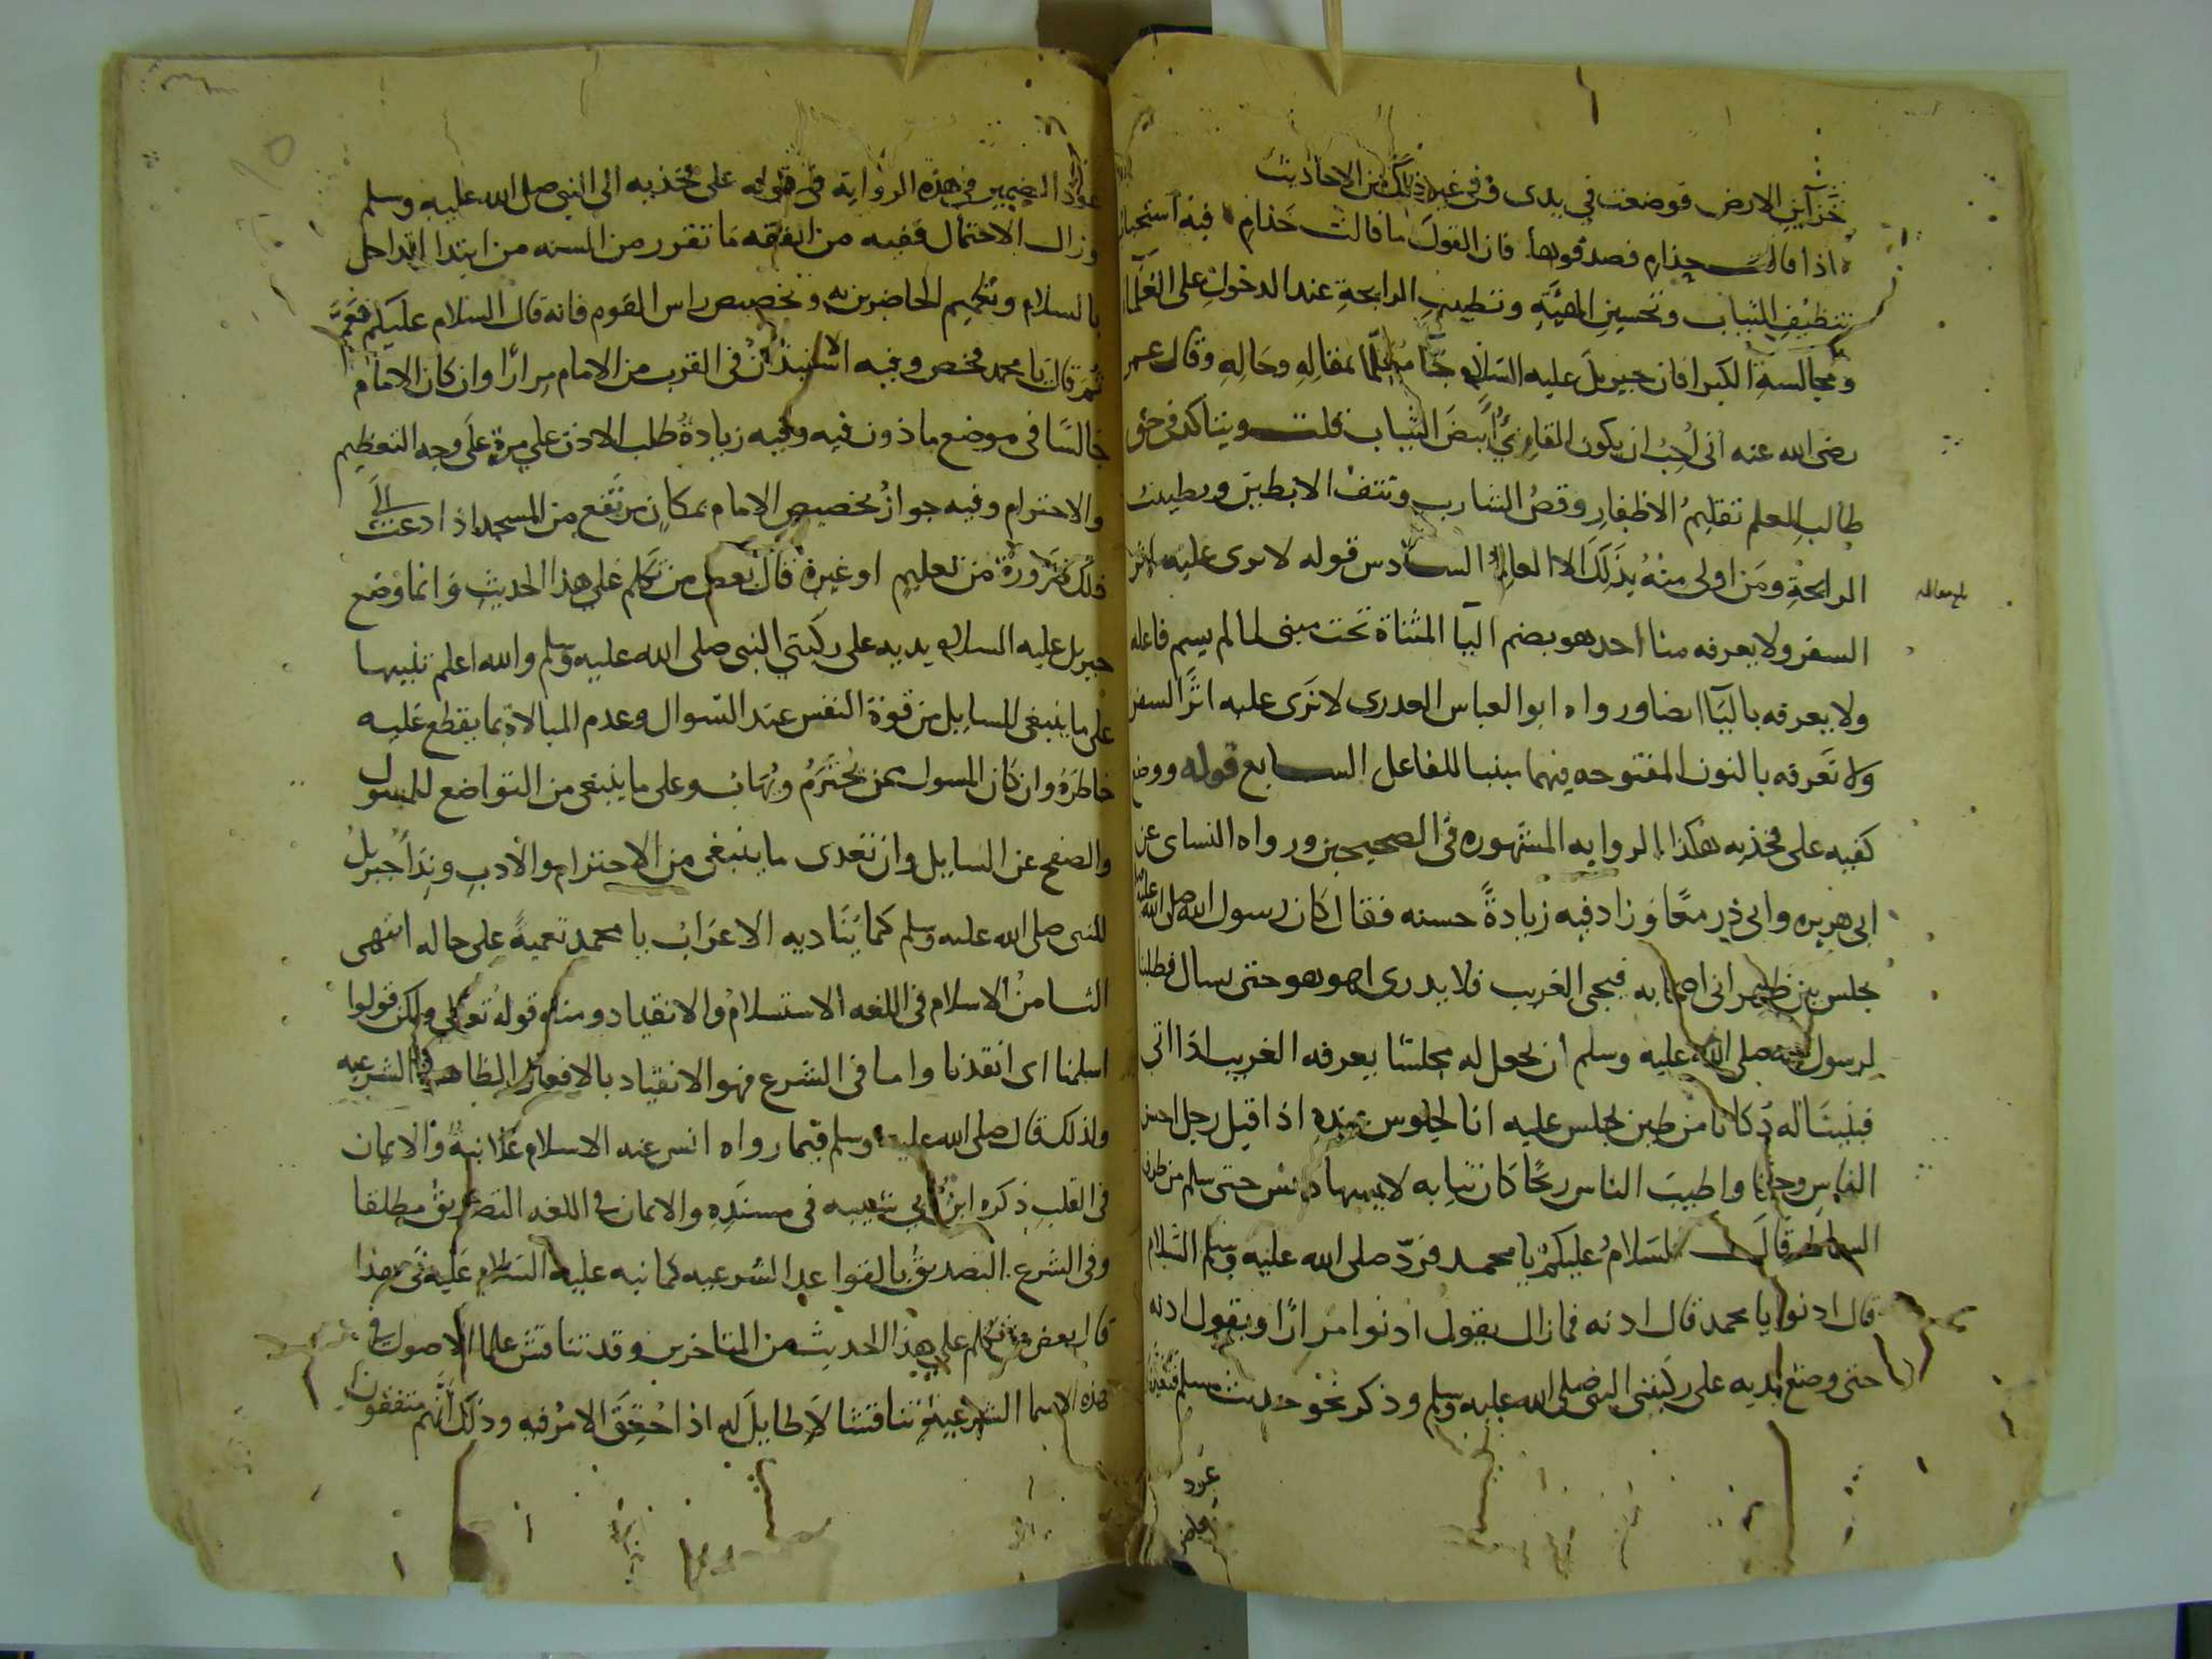 خزاين الارض فوضعت في يدى في غير ذلك من الاحاديث
اذا قالت حذام فصدقوها فان القول ما قالت حذام فيه استحباب
تنظيف الثياب وتحسين الهيئة وتطييب الرايحة عند الدخول على العلما
ومجالسة الكبرا فان جبريل عليه السلام جا معلما بمقاله وحاله وقال عمر
رضى الله عنه انى لاحب ان يكون القارئ ابيض الثياب قلت ويتاكد فى حق
طالب العلم تقليم الاظفار وقص الشارب ونتف الابطين وتطييب
الرايحة ومن اولى منه بذلك الا العالم السادس قوله لا يرى عليه اثر
السفر ولا يعرفه منا احد هو بضم اليا المثناة تحت مبنى لما لم يسم فاعله
ولا يعرفه باليا ايضا ورواه ابو العباس العدرى لا نرى عليه اثر السفر
ولا نعرفه بالنون المفتوحه فيهما مبنيا للفاعل السابع قوله ووضع
كفيه على فخذيه هكذا الروايه المشهوره فى الصحيحين ورواه النساى عن
ابى هريره وابى ذر معا وزاد فيه زيادة حسنه فقال كان رسول الله صلى الله عليه وسلم
يجلس بين ظهرانى اصحابه فيجى الغريب فلا يدرى اهو هو حتى يسال فطلبنا
لرسول الله صلى الله عليه وسلم ان نجعل له مجلسا يعرفه الغريب اذا اتى
فبنينا له دكانا من طين يجلس عليه انا لجلوس عنده اذ اقبل رجل احسن
الناس وجها واطيب الناس ريحا كان ثيابه لا يمسها دنس حتى سلم من طرف
السماط قال السلام عليكم يا محمد فرد صلى الله عليه وسلم السلام
قال ادنوا يا محمد قال ادنه فما زال يقول ادنوا مرارا ويقول ادنه
حتى وضع يديه على ركبتى النبى صلى الله عليه وسلم وذكر نحو حديث مسلم
عود
بلغ مقابله
عود الضمير فى هذه الرواية فى قوله على فخذيه الى النبى صلى الله عليه وسلم
وزال الاحتمال ففيه من الفقه ما تقرر من السنه من ابتدا الداخل
بالسلام وتعميم الحاضرين به وتخصيص راس القوم فانه قال السلام عليكم فعم
ثم قال يا محمد فخص وفيه الاستيذان فى القرب من الامام مرارا وان كان الامام
جالسا فى موضع ماذون فيه وفيه زيادة طلب الاذن على مرة على وجه التعظيم
والاحترام وفيه جواز تخصيص الامام بمكان مرتفع من المسجد اذا دعت الى
ذلك ضرورة من تعليم او غيره قال بعض من تكلم على هذا الحديث وانما وضع
جبريل عليه السلام يديه على ركبتي النبى صلى الله عليه وسلم والله اعلم تنبيها
على ما ينبغى للسايل من قوة النفس عند السوال وعدم المبالاة بما يقطع عليه
خاطره وان كان المسول ممن يحترم ويهاب وعلى ما ينبغى من التواضع للمسول
والصفح عن السايل وان تعدى ما ينبغى من الاحترام والادب وندا جبريل
للنبى صلى الله عليه وسلم كما يناديه الاعراب يا محمد تعمية على حاله انتهى
الثامن الاسلام فى اللغه الاستسلام والانقياد ومنه قوله تعالى ولكن قولوا
اسلمنا اى انقدنا واما فى الشرع فهو الانقياد بالافعال الظاهرة الشرعيه
ولذلك قال صلى الله عليه وسلم فيما رواه انس عنه الاسلام علانية والايمان
فى القلب ذكره ابن ابي شيبه فى مسنده والايمان فى اللغه التصديق مطلقا
وفى الشرع التصديق بالقواعد الشرعيه كما نبه عليه السلام عليه فى هذا
قال بعض من تكلم على هذا الحديث من المتاخرين وقد تناقش علما الاصول فى
هذه الاسما الشرعية تناقشا لا طايل له اذا حقق الامر فيه وذلك انهم متفقون